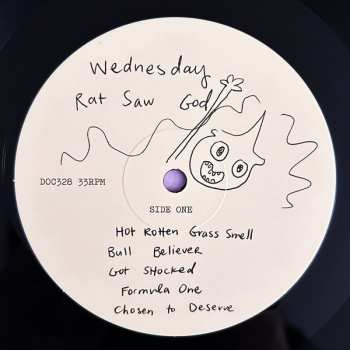 Wednesday
Rat Saw God
DOC328 33RPM
SIDE ONE
Hot Rotten Grass Smell
Bull Believer
Got Shocked
Formula One
Chosen to Deserve